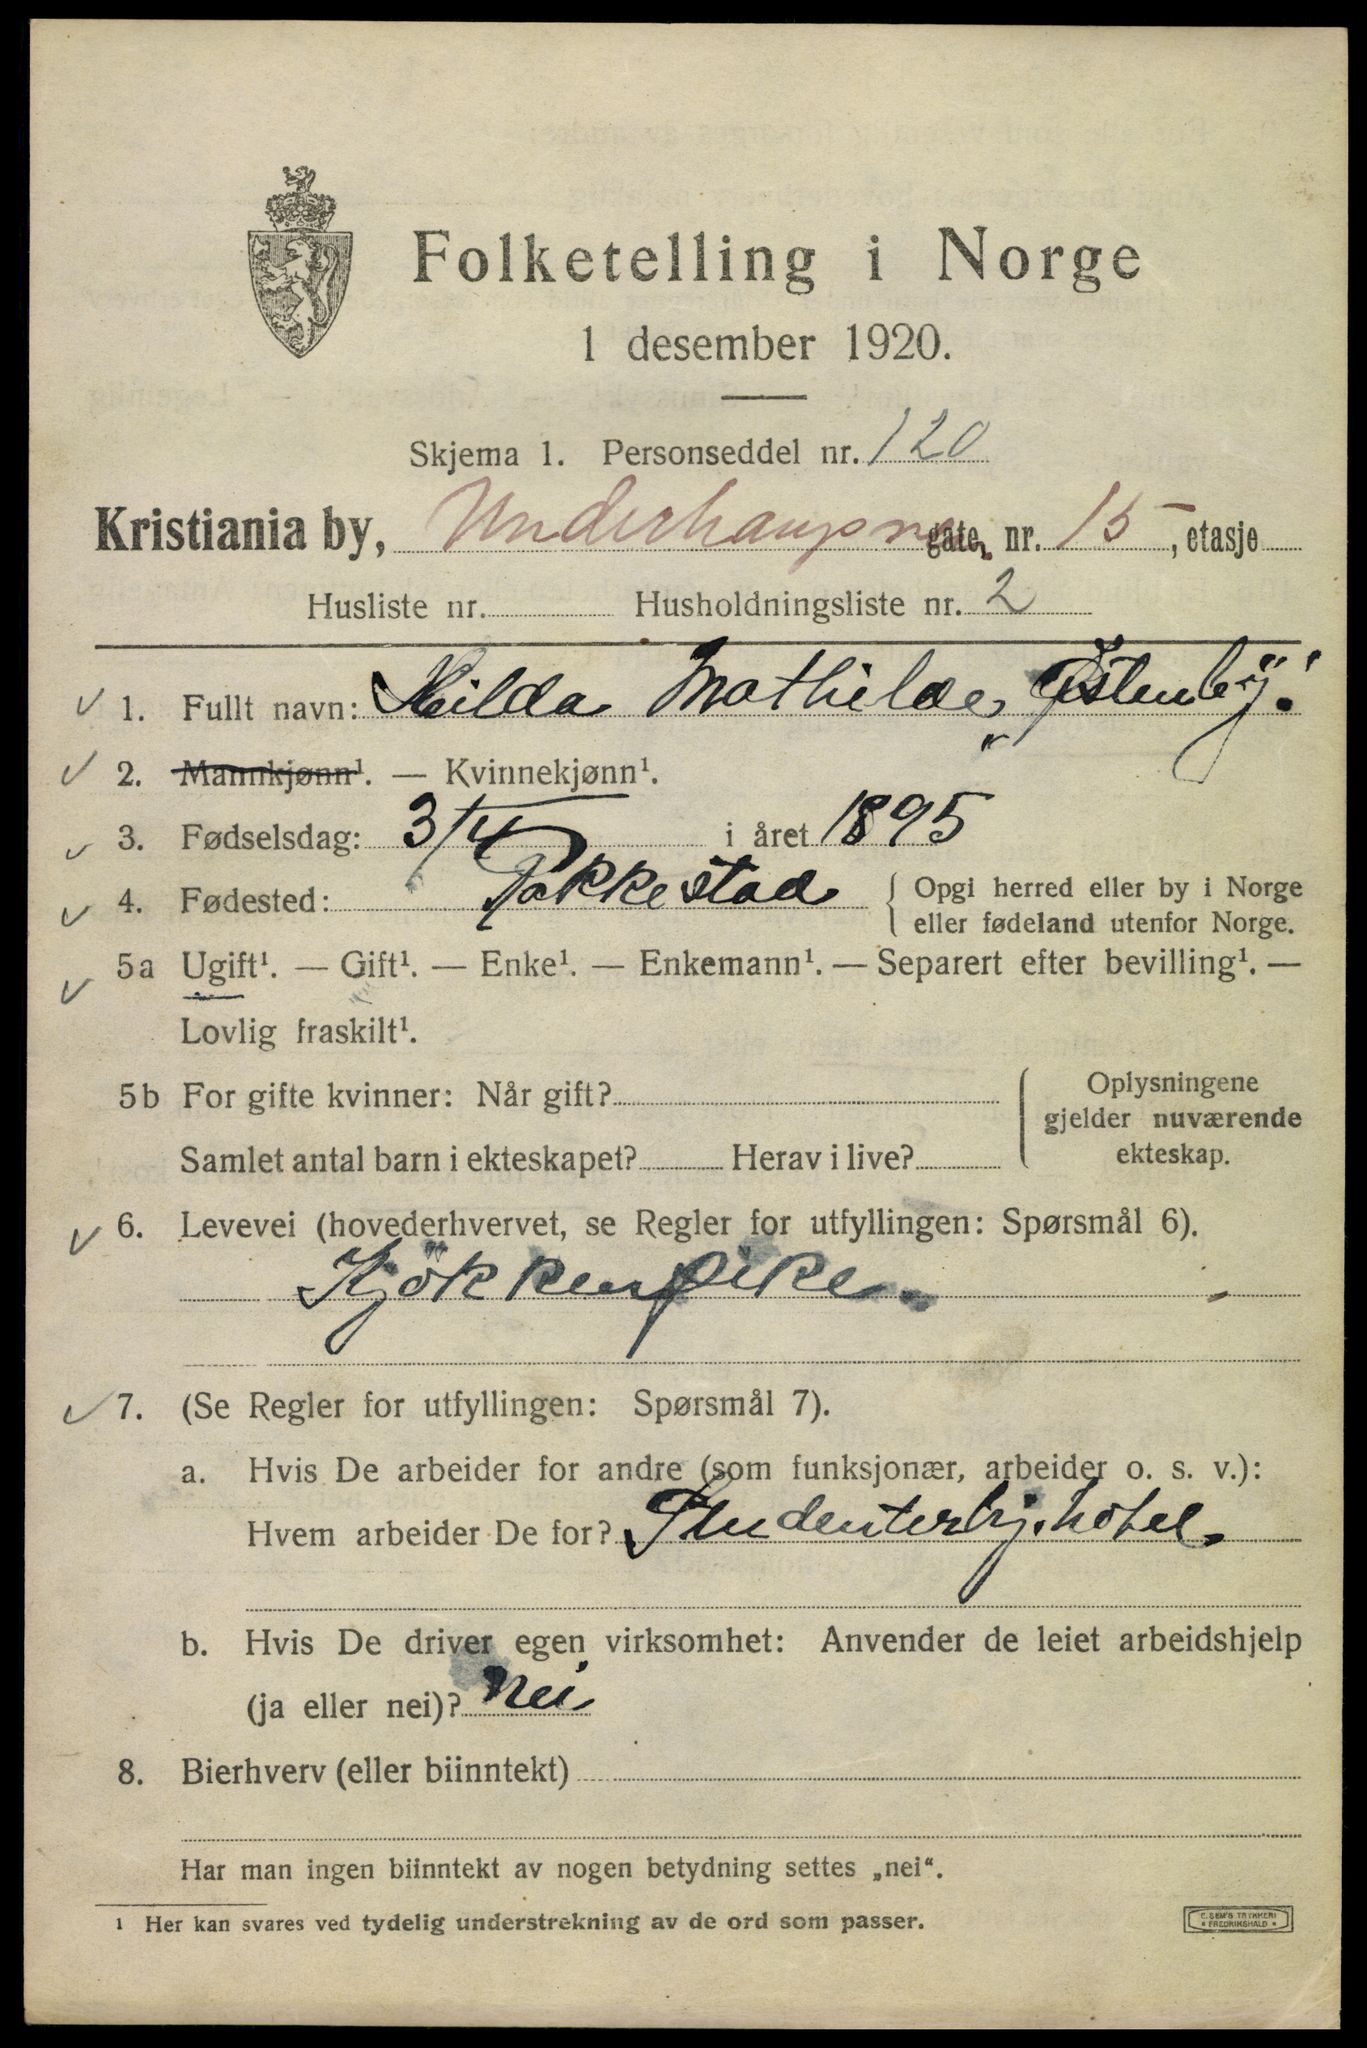 Folketelling i Norge
1 desember 1920.
Skjema 1. Personseddel nr. 120
Kristiania by, Underhaugsvn gate, nr. 15, etasje
Husliste nr. Husholdningsliste nr. 2
1. Fullt navn: Hilda Mathilde Østenby.
2. Mannkjønn¹. — Kvinnekjønn¹.
3. Fødselsdag: 3/4 i året 1895
4. Fødested: Rakkestad { Opgi herred eller by i Norge
eller fødeland utenfor Norge.
5a Ugift¹. — Gift¹. — Enke¹. — Enkemann¹. — Separert efter bevilling¹. —
Lovlig fraskilt¹.
5b For gifte kvinner: Når gift? { Oplysningene
gjelder nuværende
ekteskap.
Samlet antal barn i ekteskapet? Herav i live?
6. Levevei (hovederhvervet, se Regler for utfyllingen: Spørsmål 6).
Kjökkenpike.
7. (Se Regler for utfyllingen: Spørsmål 7).
a. Hvis De arbeider for andre (som funksjonær, arbeider o. s. v.):
Hvem arbeider De for? Studenterhj. hotel.
b. Hvis De driver egen virksomhet: Anvender de leiet arbeidshjelp
(ja eller nei)? Nei
8. Bierhverv (eller biinntekt)
Har man ingen biinntekt av nogen betydning settes „nei“.
¹ Her kan svares ved tydelig understrekning av de ord som passer.
C. SEM'S TRYKKERI
* FREDRIKSHALD *